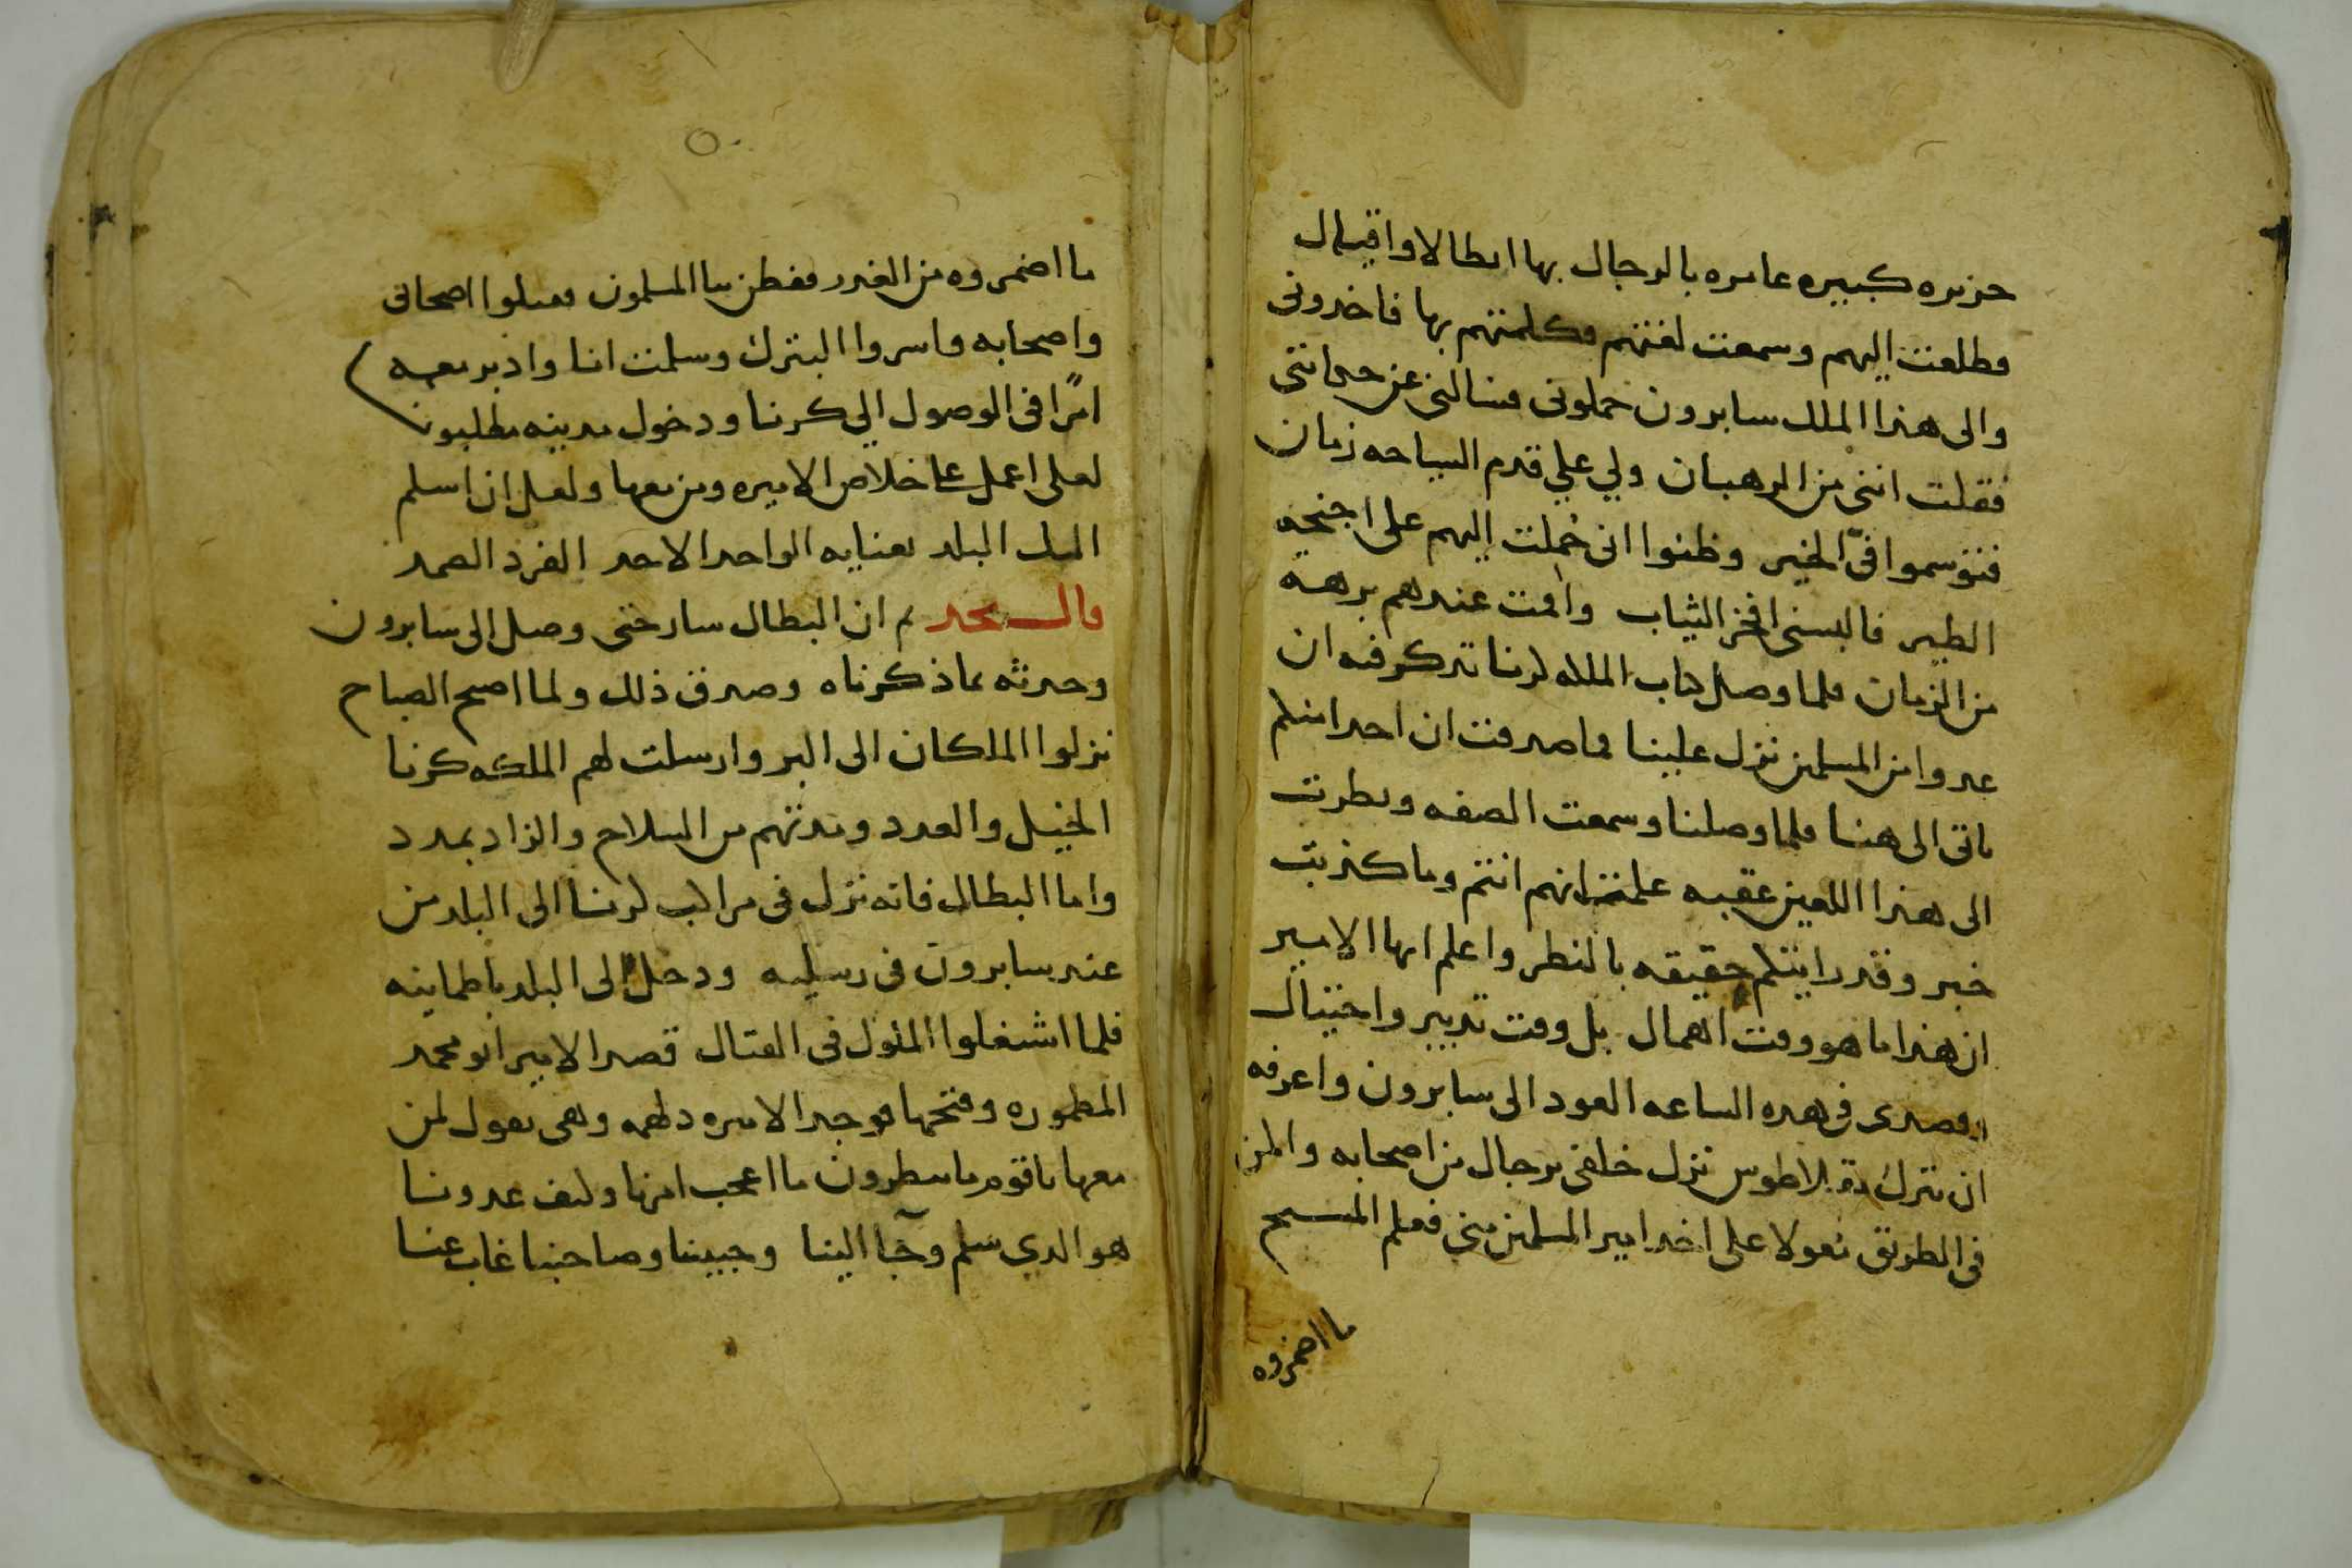 جزيره كبيره عامره بالرجال بها ابطالا واقيال
فطلعت اليهم وسمعت لغتهم فكلمتهم بها فاخدوني
والى هذا الملك سابرون حملوني فسالني عن حيانتي
فقلت انني من الرهبان ولي علي قدم السياحه زمان
فتوسموا فيّ الخير وظنوا اني حُملت اليهم على اجنحه
الطير فالبسني افخر الثياب واقمت عندهم برهه
من الزمان فلما وصل كتاب الملكه كرنا تدكر فيه ان
عدوا من المسلمين نزل علينا فما صدقت ان احدا منكم
ياتي الى هنا فلما وصلنا وسمعت الصفه ونظرت
الى هذا اللعين عقبه علمت انهم انتم وما كذبت
خبر وقد رايتكم حقيقه بالنظر واعلم ايها الامير
ان هذا ما هو وقت اهمال بل وقت تدبير واحتيال
وقصدي في هده الساعه العود الى سابرون واعرفه
ان بترك دقلاطوس نزل خلفي برجال من اصحابه والمن
في الطريق نعولا على اخد امير المسلمين مني فعلم المسيح
ما اضمروه
ما اضمروه من الغدر ففطن بنا المسلمون فقتلوا اصحابي
واصحابه واسروا البترك وسلمت انا وادبر معه
امرًا في الوصول الي كرنا ودخول مدينه مطلبونا
لعلى اعمل على خلاص الاميره ومن معها ولعل ان اسلم
اليك البلد بعنايه الواحد الاحد الفرد الصمد
قال نجد ثم ان البطال سار حتى وصل الى سابرون
وحدثه بما ذكرناه وصدق ذلك ولما اصبح الصباح
نزلوا الملكان الى البر وارسلت لهم الملكه كرنا
الخيل والعدد ومدتهم من السلاح والزاد بمدد
واما البطال فانه نزل في مراكب كرنا الى البلد من
عند سابرون في رسليه ودخل الى البلد باطماينه
فلما اشغلوا الملوك في القتال قصد الامير ابو محمد
المطموره وفتحها فوجد الاميره دلهمه وهي تقول لمن
معها يا قوم ما تنظرون ما اعجب امرنا وكيف عدونا
هو الدي سلم وجآ الينا وحبيبنا وصاحبنا غاب عنا